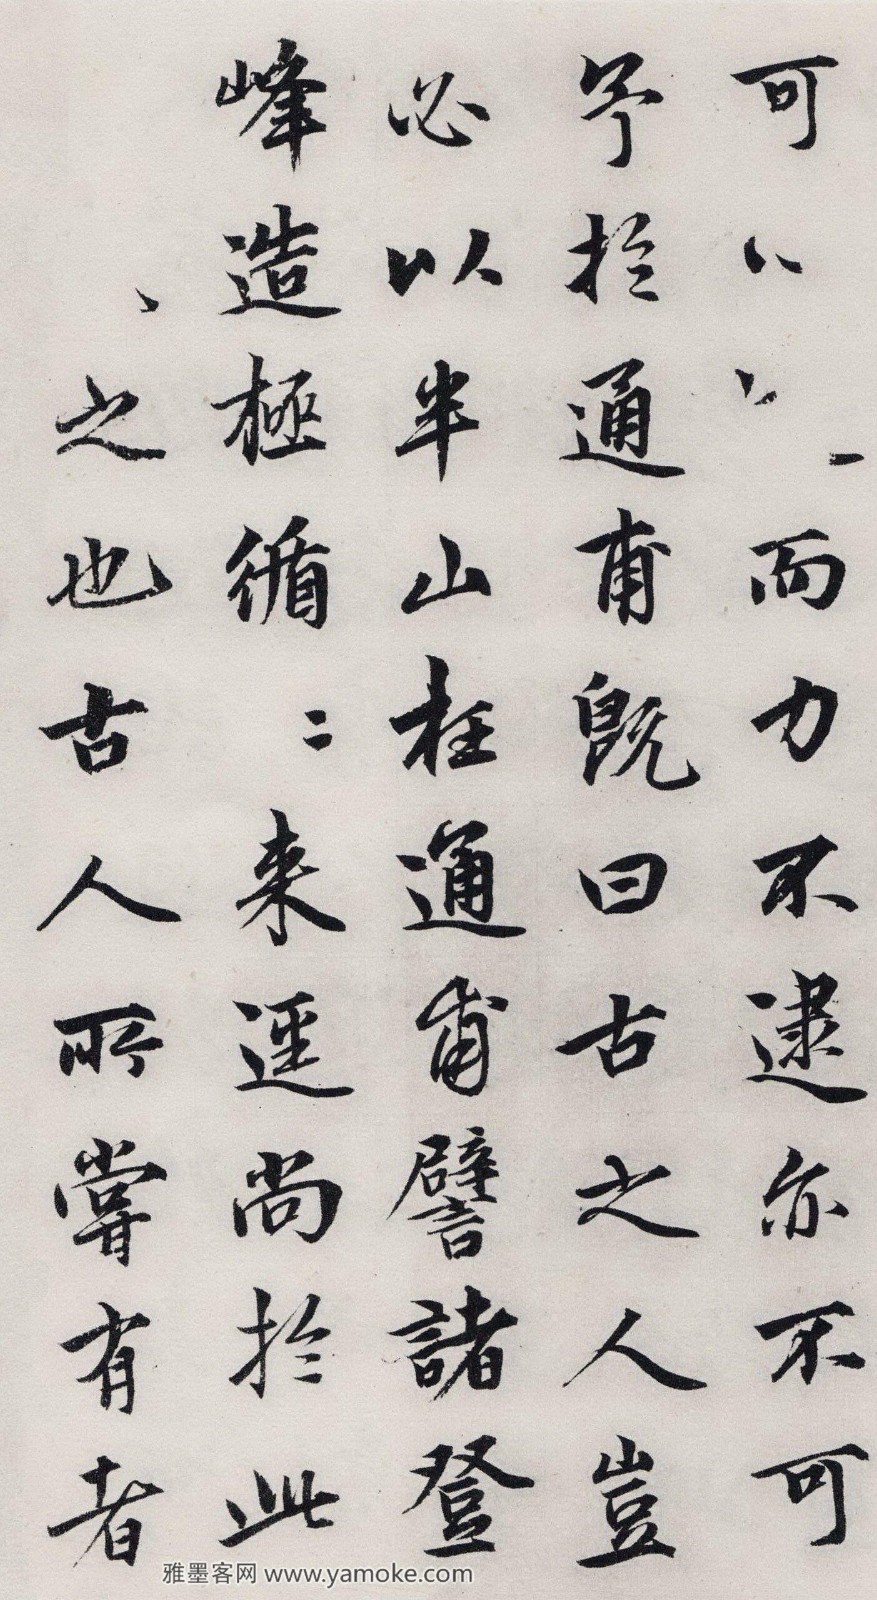 可而力不逮亦不可
予於通甫既曰古之人豈
必以半山在通甫譬諸登
峰造極循〻来逕尚於此
之也古人所嘗有者
雅墨客网 www.yamoke.com